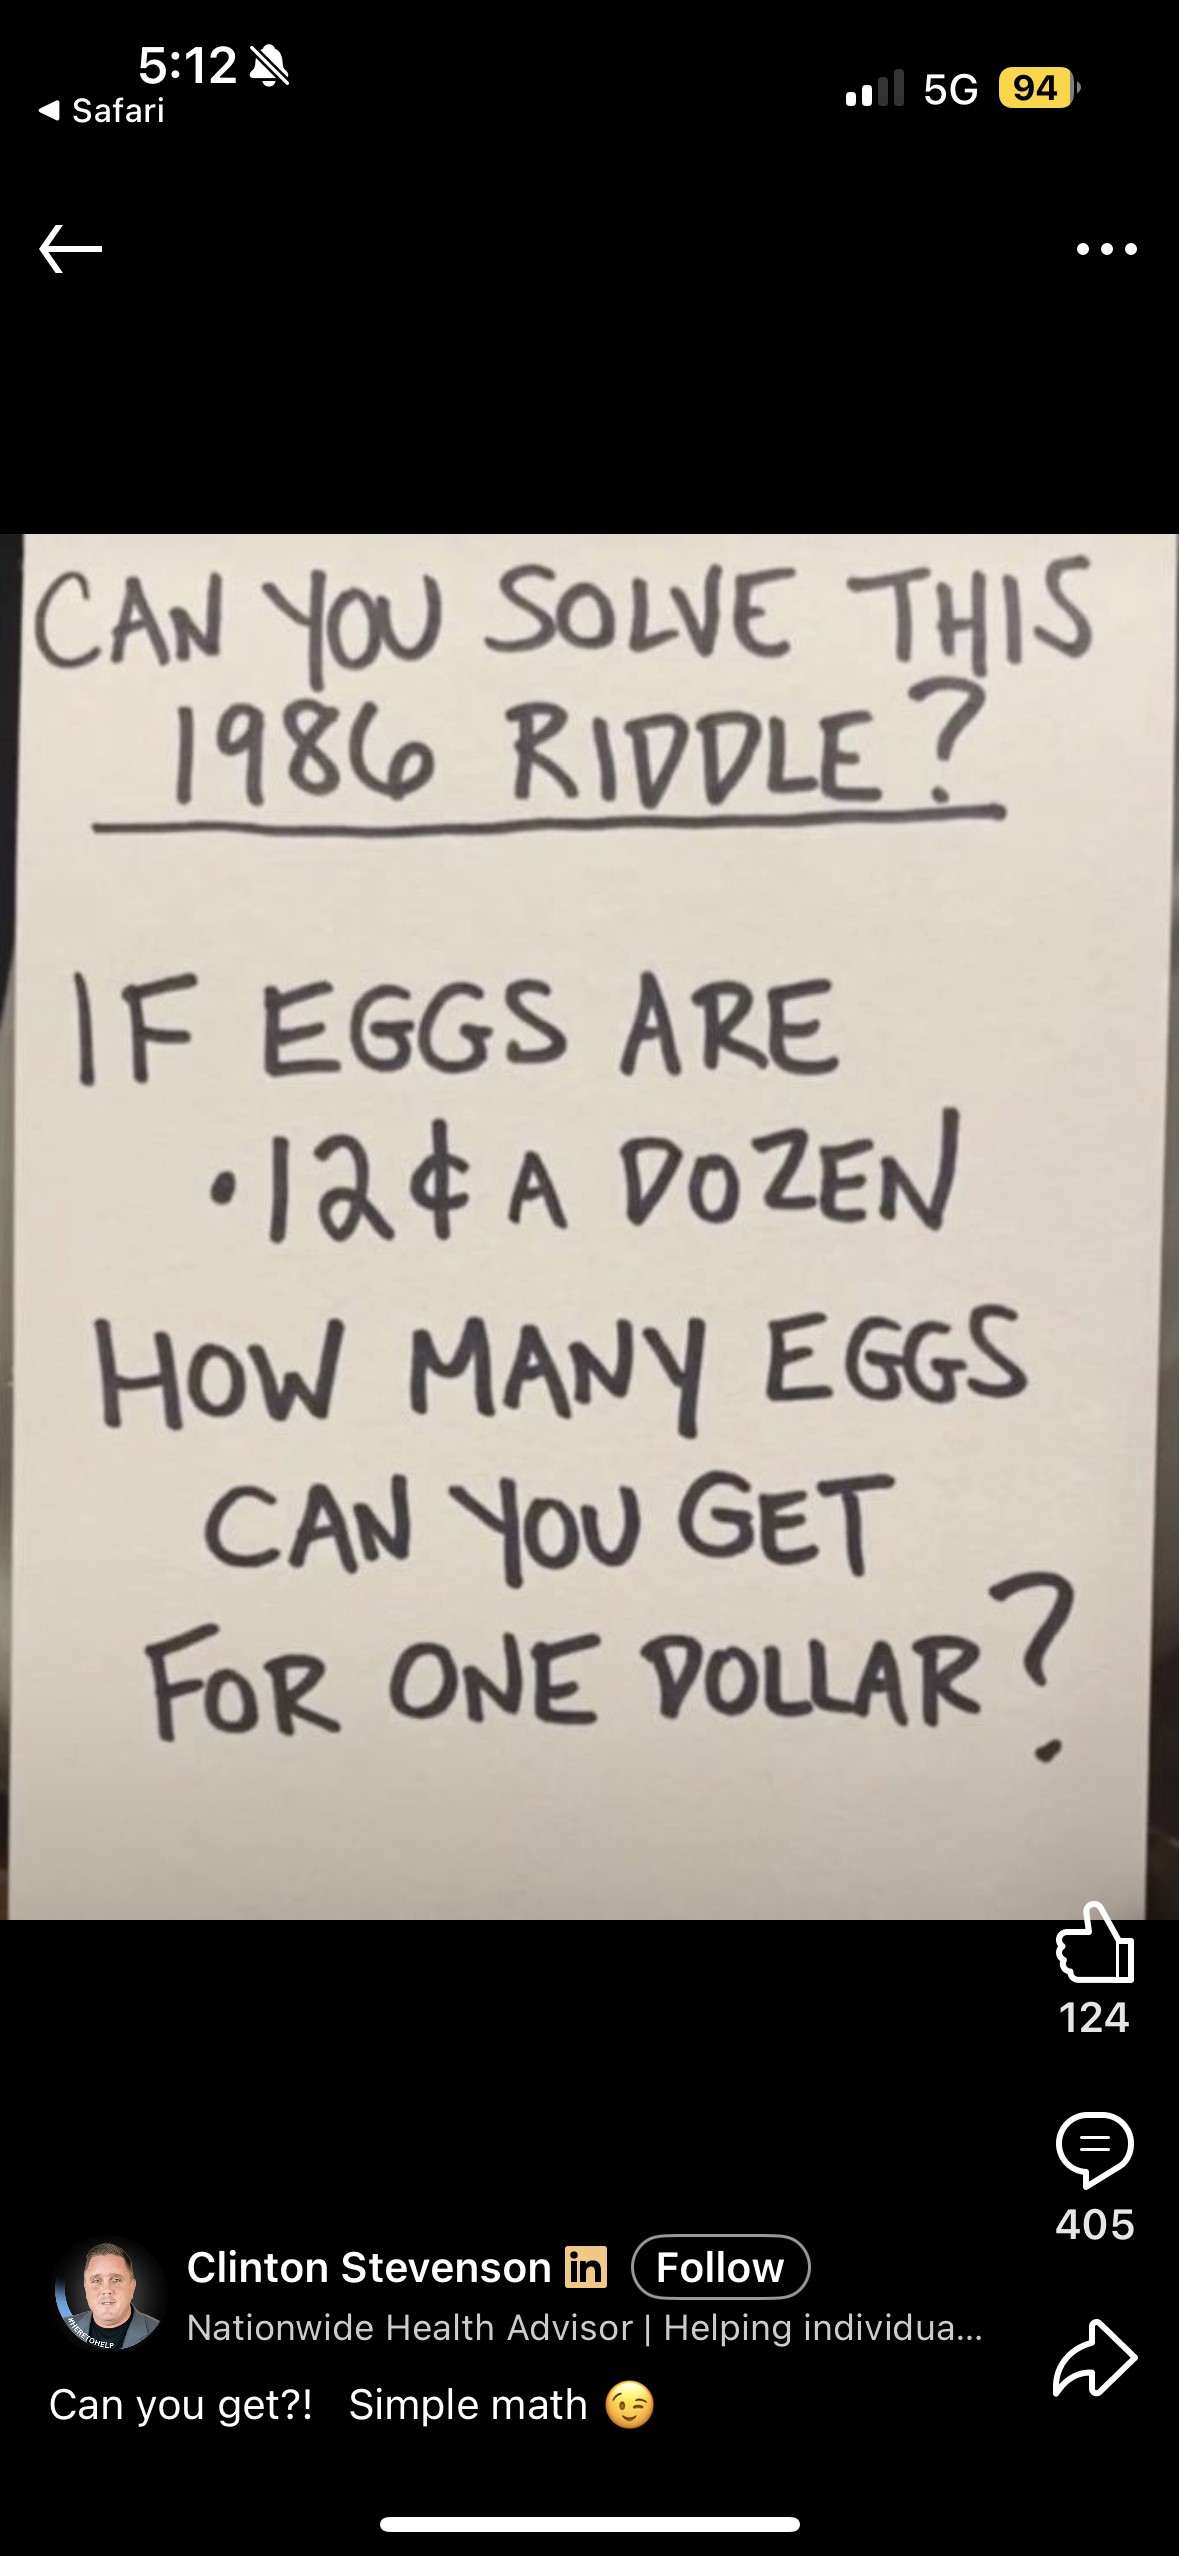 5:12
Safari
5G
94
CAN YOU SOLVE THIS
1986 RIDDLE?
IF EGGS ARE
.12¢ A DOZEN
HOW MANY EGGS
CAN YOU GET
FOR ONE DOLLAR?
124
405
Clinton Stevenson in Follow
Nationwide Health Advisor | Helping individua...
#HERETOHELP
Can you get?! Simple math 😉